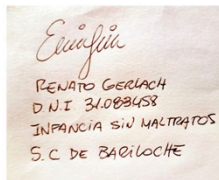 RENATO GERLACH
D.N.I 31.083458
INFANCIA SIN MALTRATOS
S.C DE BARILOCHE